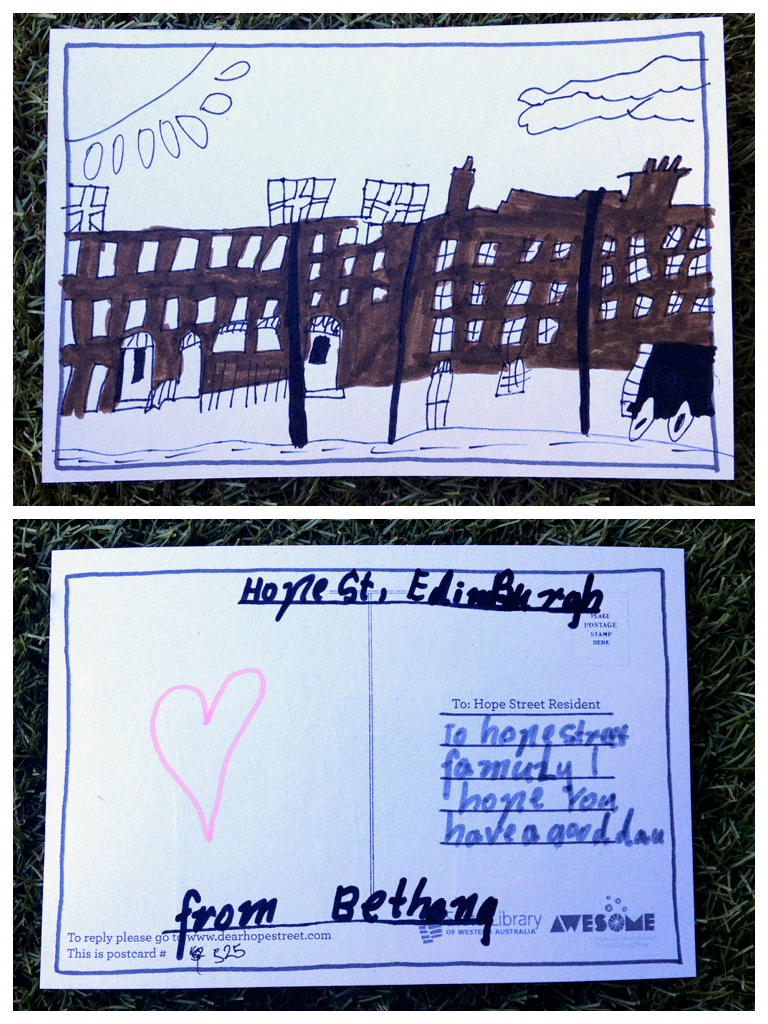 Hope St, EdinBurgh
PLACE
POSTAGE
STAMP
HERE
To: Hope Street Resident
To hope street
famuzly I
I hope You
have a good dau
from Bethany
Library
OF WESTERN AUSTRALIA
AWESOME
To reply please go to www.dearhopestreet.com
This is postcard # 525